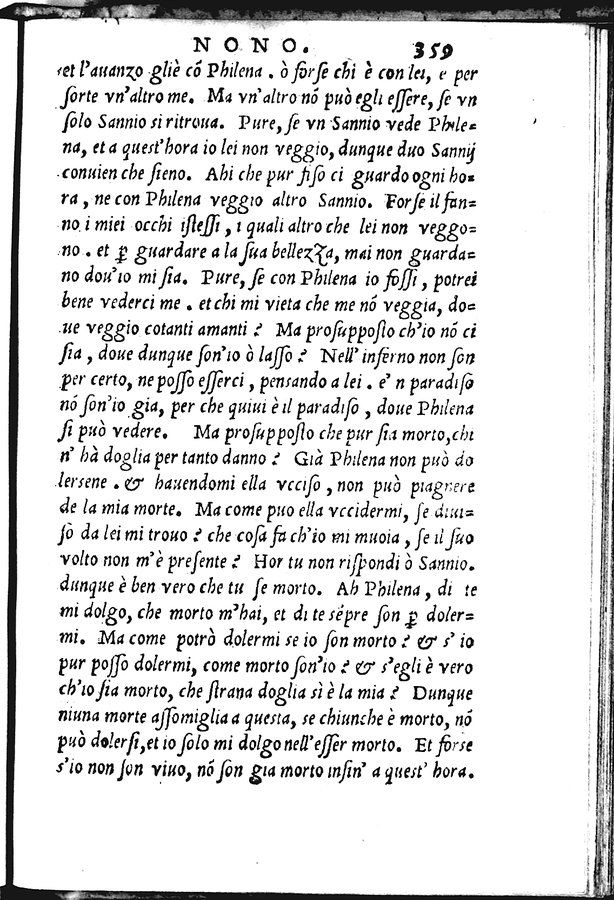 NONO. 359
et l'auanzo gliè cõ Philena. ò forse chi è con lei, e per
sorte vn'altro me. Ma vn'altro nõ può egli essere, se vn
solo Sannio si ritroua. Pure, se vn Sannio vede Phile=
na, et a quest'hora io lei non veggio, dunque duo Sannij
conuien che sieno. Ahi che pur fiso ci guardo ogni ho=
ra, ne con Philena veggio altro Sannio. Forse il fan=
no i miei occhi istessi, i quali altro che lei non veggo=
no. et ꝑ guardare a la sua bellezza, mai non guarda=
no dou'io mi sia. Pure, se con Philena io fossi, potrei
bene vederci me. et chi mi vieta che me nõ veggia, do=
ue veggio cotanti amanti? Ma prosupposto ch'io nõ ci
sia, doue dunque son'io ò lasso? Nell'inferno non son
per certo, ne posso esserci, pensando a lei. e'n paradiso
nõ son'io gia, per che quiui è il paradiso, doue Philena
si può vedere. Ma prosupposto che pur sia morto, chi
n'hà doglia per tanto danno? Già Philena non può do
lersene. & hauendomi ella vcciso, non può piagnere
de la mia morte. Ma come puo ella vccidermi, se diui=
so da lei mi trouo? che cosa fa ch'io mi muoia, se il suo
volto non m'è presente? Hor tu non rispondi ò Sannio.
dunque è ben vero che tu se morto. Ah Philena, di te
mi dolgo, che morto m'hai, et di te sẽpre son ꝑ doler=
mi. Ma come potrò dolermi se io son morto? & s'io
pur posso dolermi, come morto son'io? & s'egli è vero
ch'io sia morto, che strana doglia sì è la mia? Dunque
niuna morte assomiglia a questa, se chiunche è morto, nõ
può dolersi, et io solo mi dolgo nell'esser morto. Et forse
s'io non son viuo, nõ son gia morto insin'a quest'hora.